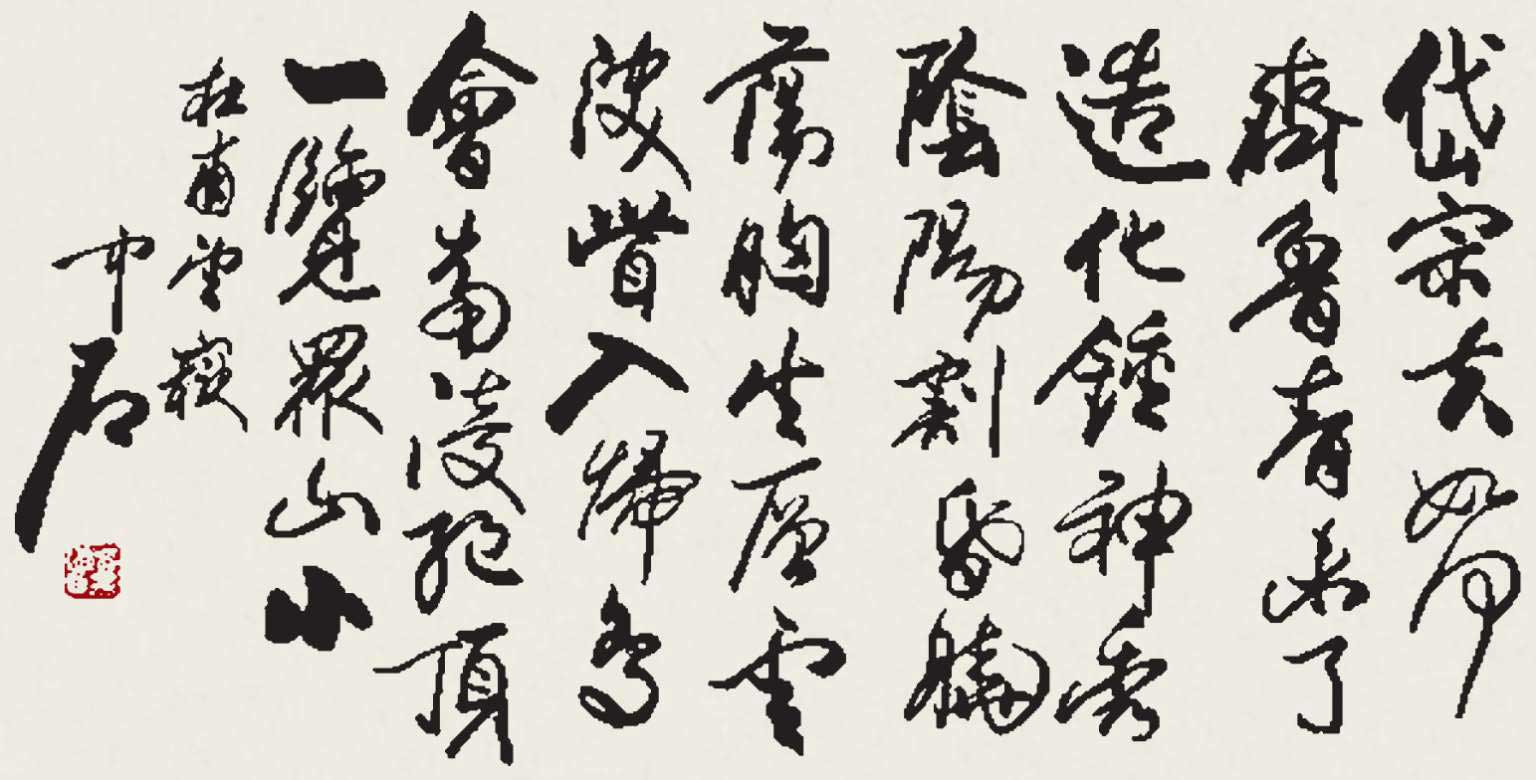 岱宗夫如何
齊魯青未了
造化鍾神秀
陰陽割昏曉
蕩胸生層雲
決眥入歸鳥
會當淩絕頂
一覽眾山小
杜甫望嶽
中石